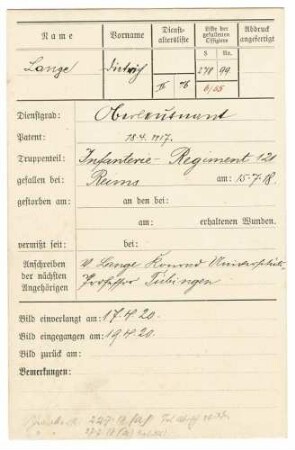 Name Vorname Dienst-altersliste Liste der gefallenen Offiziere Abdruck angefertigt
S. No.
Lange Dietrich 278 99
IV 76 6/55
Dienstgrad: Oberleutnant
Patent: 18.4.1917.
Truppenteil: Infanterie-Regiment 121
gefallen bei: Reims am: 15.7.18.
gestorben am: an den bei:
am: erhaltenen Wunden.
vermißt seit: bei:
Anschreiben der nächsten Angehörigen
v. Lange Konrad Universitäts-
Professor Tübingen
Bild einverlangt am: 17.4.20.
Bild eingegangen am: 19.4.20.
Bild zurück am:
Bemerkungen: